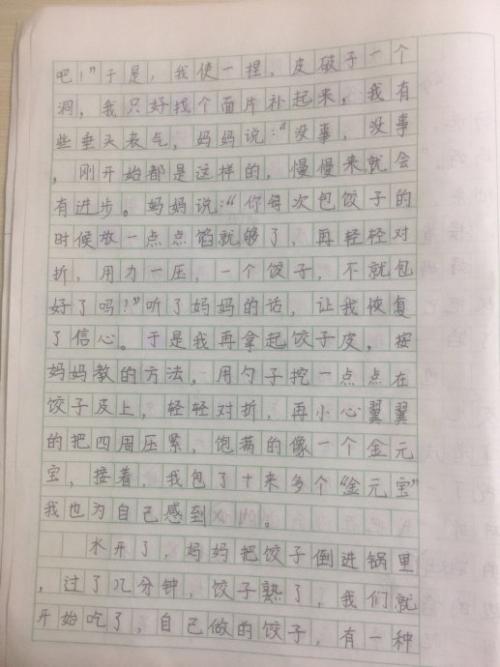 吧！”于是，我使一捏，皮破了一个
洞，我只好找个面片补起来。我有
些垂头丧气，妈妈说：“没事，没事
，刚开始都是这样的，慢慢来就会
有进步。妈妈说：“你每次包饺子的
时候放一点点馅就够了，再轻轻对
折，用力一压，一个饺子，不就包
好了吗？”听了妈妈的话，让我恢复
了信心。于是我再拿起饺子皮，按
妈妈教的方法，用勺子挖一点点在
饺子皮上，轻轻对折，再小心翼翼
的把四周压紧，饱满的像一个金元
宝，接着，我包了十来多个“金元宝”
我也为自己感到。
水开了，妈妈把饺子倒进锅里
，过了几分钟，饺子熟了，我们就
开始吃了，自己做的饺子，有一种